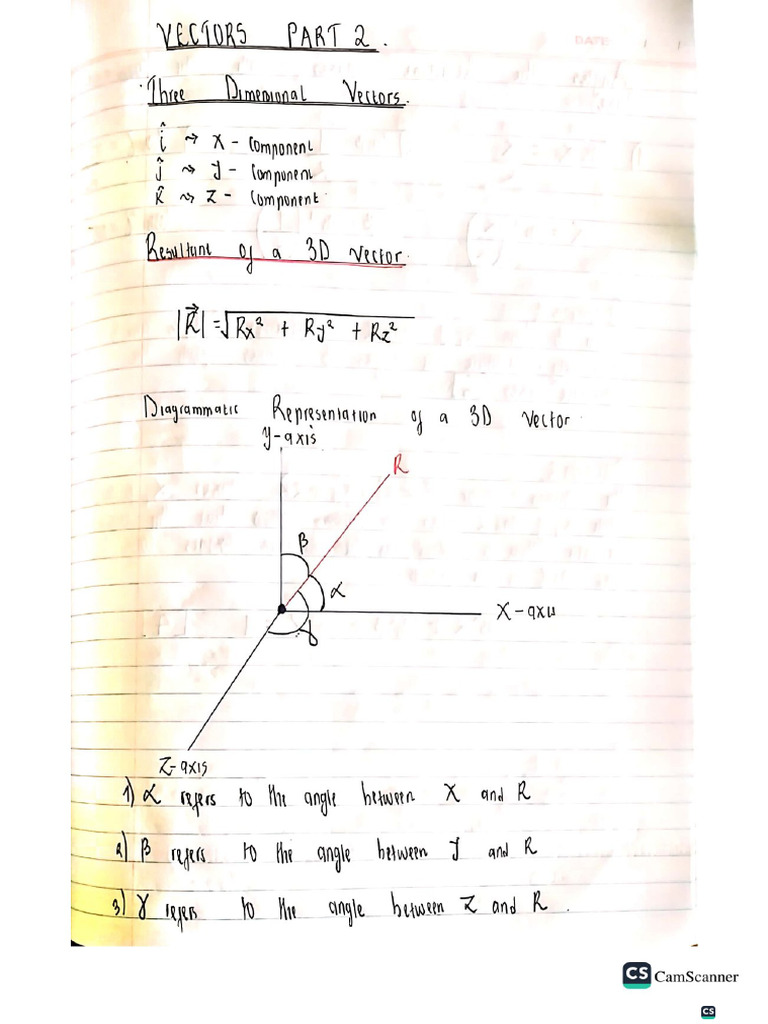 VECTORS PART 2.
DATE / /
Three Dimensional Vectors.
î → X - component
ĵ → y - component
k̂ → Z - component
Resultant of a 3D vector.
|R⃗| = √Rx² + Ry² + Rz²
Diagrammatic Representation of a 3D vector
y-axis
R
β
α
X-axis
γ
Z-axis
1) α refers to the angle between X and R
2) β refers to the angle between y and R
3) γ refers to the angle between Z and R.
CS CamScanner
CS